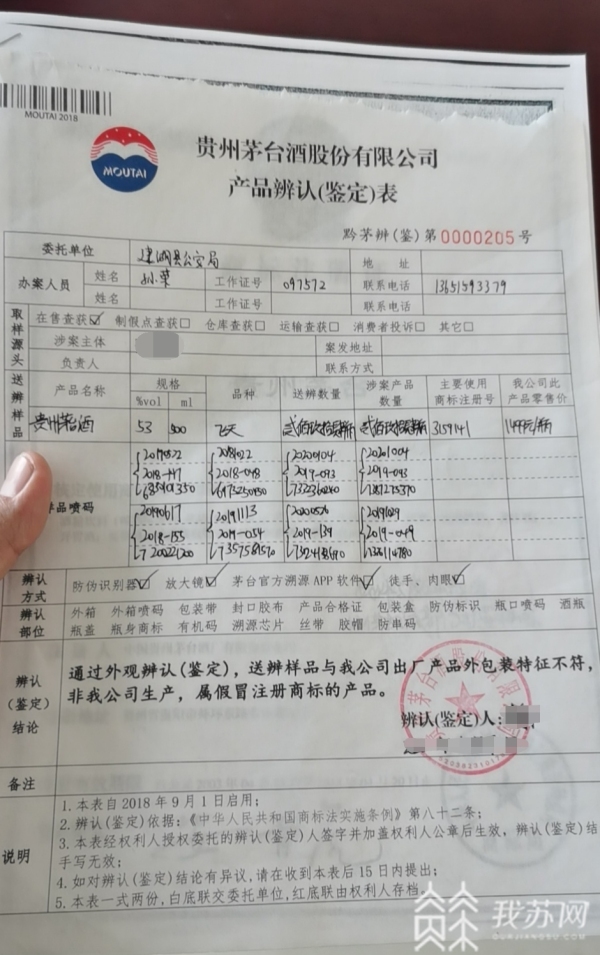 MOUTAI 2018
MOUTAI
贵州茅台酒股份有限公司
产品辨认(鉴定)表
黔茅辨(鉴)第0000205号
委托单位 建湖县公安局 地 址
办案人员 姓名 孙荣 工作证号 097572 联系电话 13651593379
姓名 工作证号 联系电话
取样源头 在售查获☑ 制假点查获☐ 仓库查获☐ 运输查获☐ 消费者投诉☐ 其它☐
涉案主体 案发地址
负责人 联系方式
送辨样品 产品名称 规格 %vol ml 品种 送辨数量 涉案产品数量 主要使用商标注册号 我公司此产品零售价
贵州茅台酒 53 500 飞天 3159141
品喷码
20190617 20191113
2018-155 2019-054 2019-139 2019-049
辨认方式 防伪识别器☑ 放大镜☑ 茅台官方溯源APP软件☑ 徒手、肉眼☑
辨认部位 外箱 外箱喷码 包装带 封口胶布 产品合格证 包装盒 防伪标识 瓶口喷码 酒瓶
瓶盖 瓶身商标 有机码 溯源芯片 丝带 胶帽 防串码
辨认(鉴定)结论 通过外观辨认(鉴定),送辨样品与我公司出厂产品外包装特征不符,
非我公司生产,属假冒注册商标的产品。
辨认(鉴定)人:
备注
说明 1. 本表自2018年9月1日启用;
2. 辨认(鉴定)依据:《中华人民共和国商标法实施条例》第八十二条;
3. 本表经权利人授权委托的辨认(鉴定)人签字并加盖权利人公章后生效,辨认(鉴定)结
手写无效;
4. 如对辨认(鉴定)结论有异议,请在收到本表后15日内提出;
5. 本表一式两份,白底联交委托单位,红底联由权利人存档。
我苏网
OURJIANGSU.COM